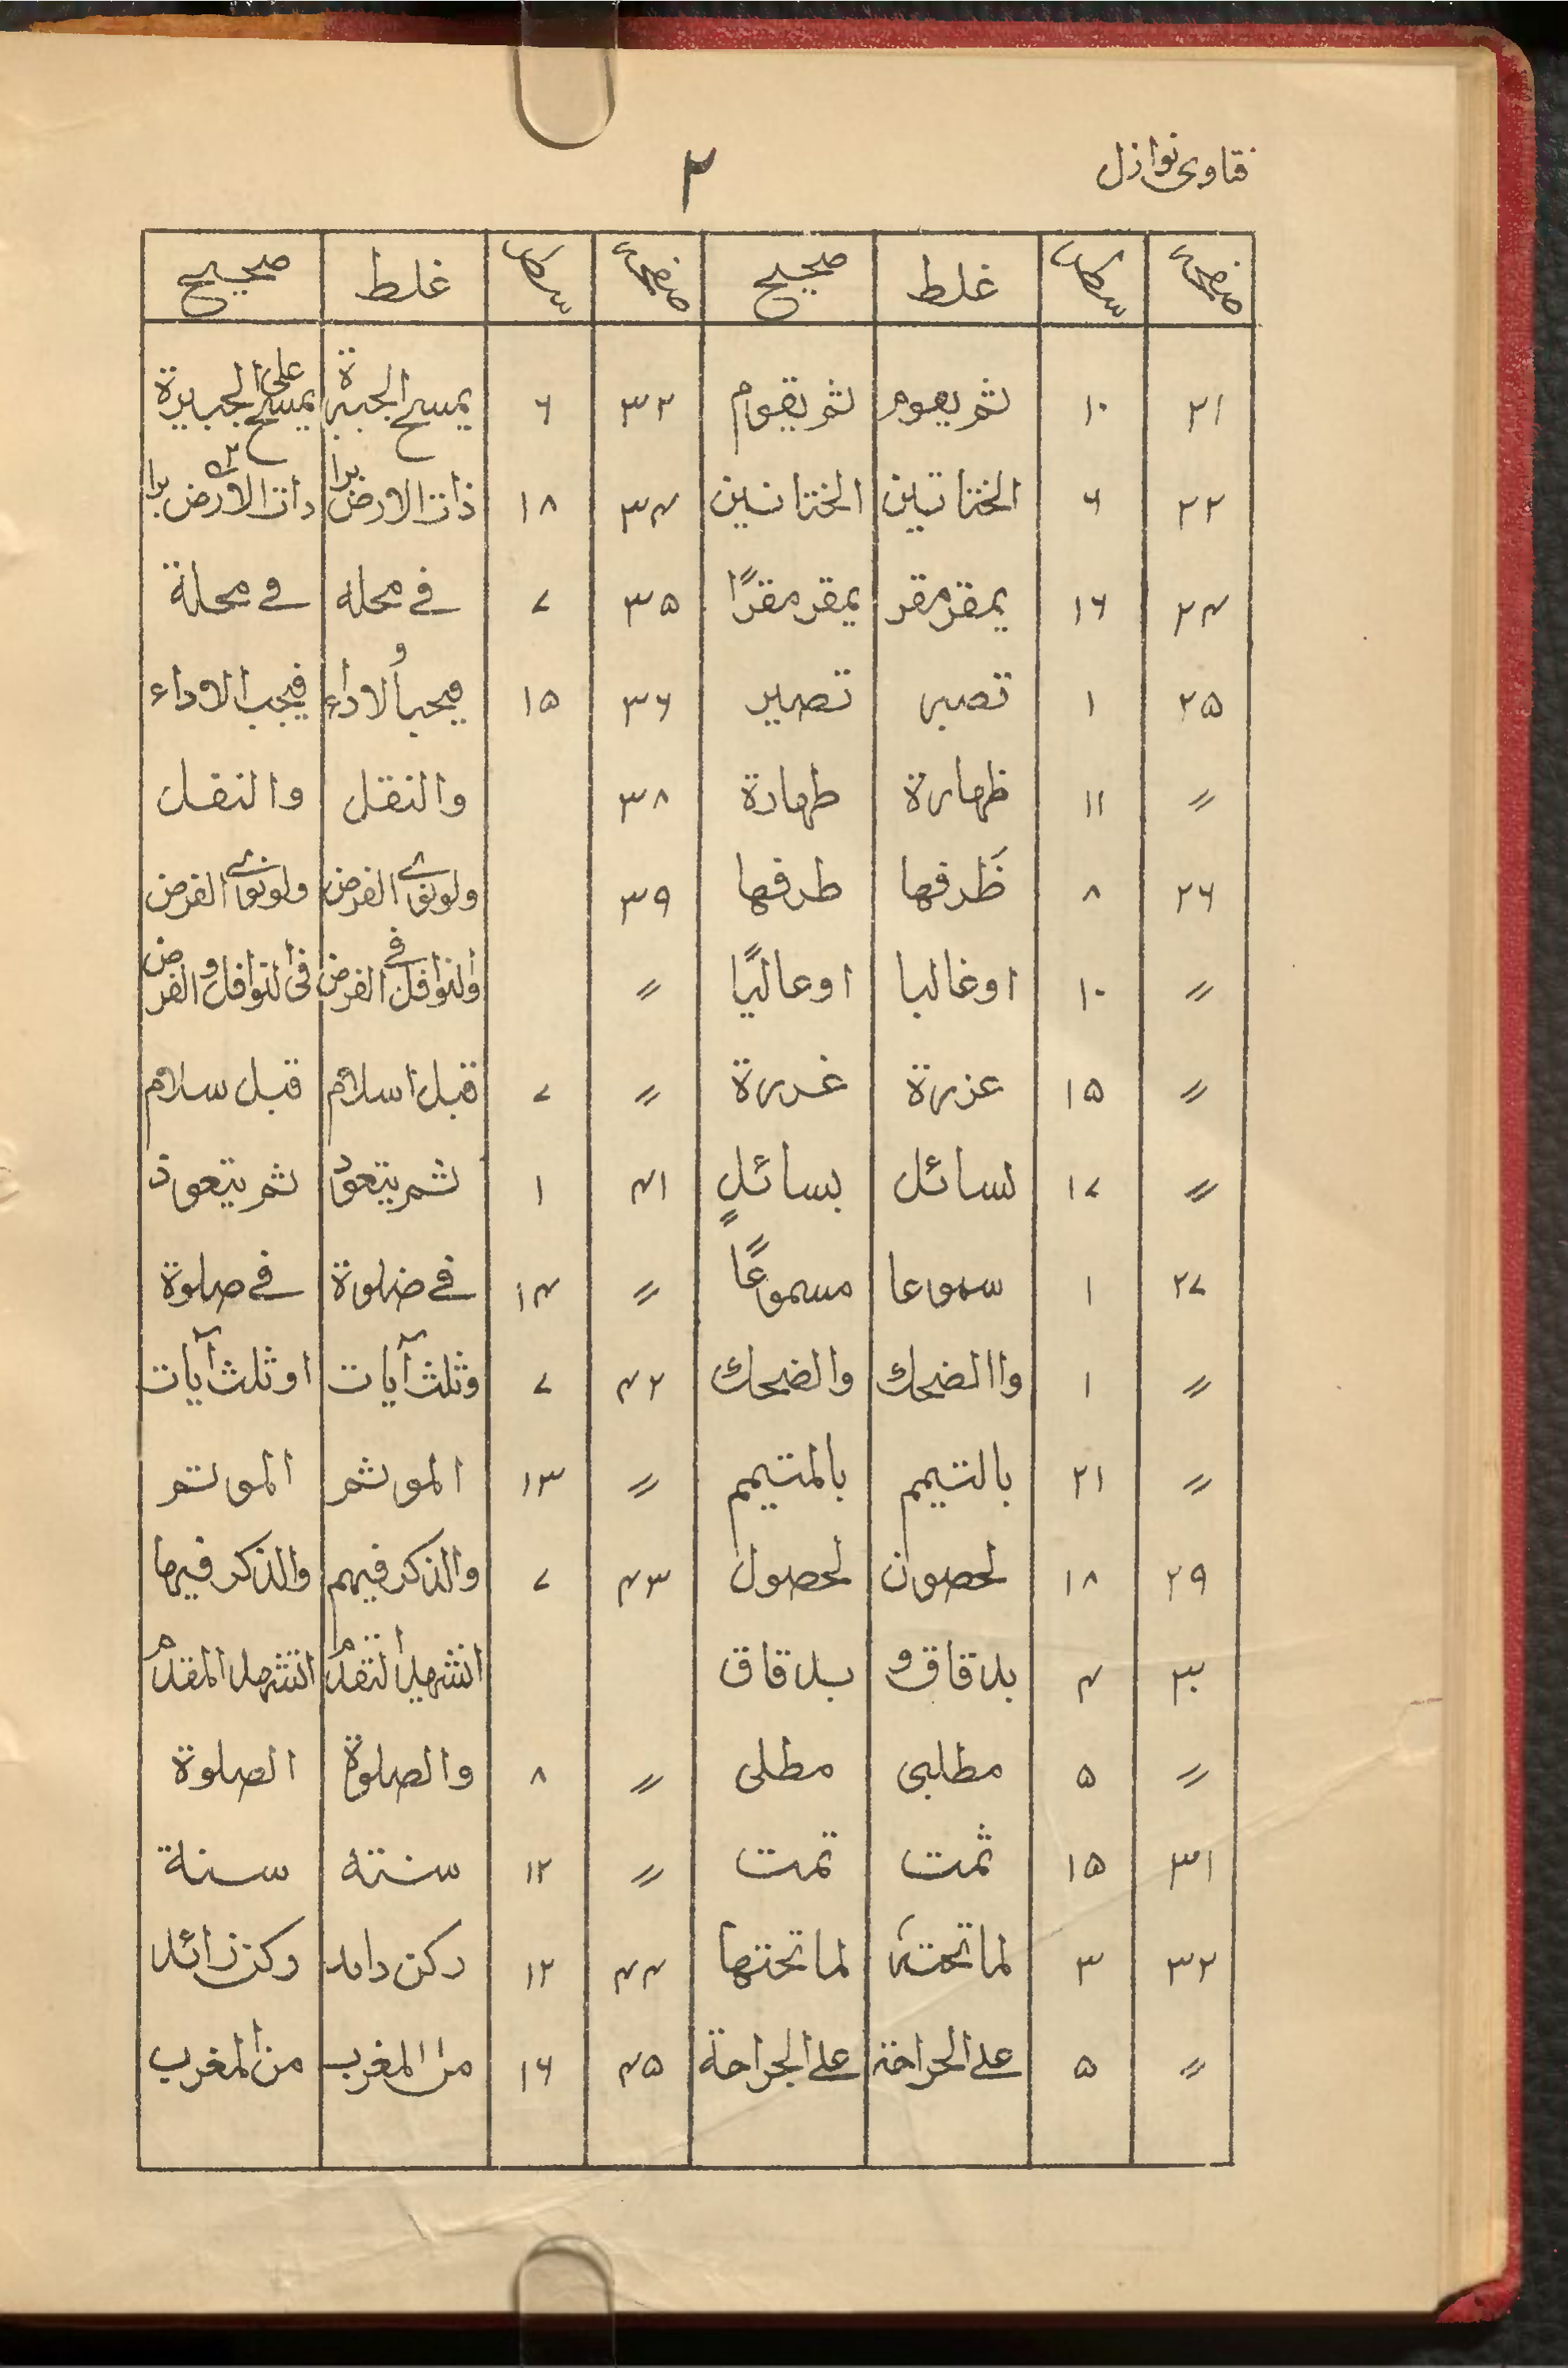 فتاوى نوازل
۲
صفحہ سطر غلط صحیح صفحہ سطر غلط صحیح
۲۱ ۱۰ ثم يعوم ثم يقوم ۳۲ ۶ يمسح الجبيرة يمسح على الجبيرة
۲۲ ۶ الختاتين الختانين ۳۴ ۱۸ ذات الارض ذات الارض
۲۴ ۱۶ يمقر مقر يمقر مقرًا ۳۵ ۷ فے محله فے محلة
۲۵ ۱ تصبر تصير ۳۶ ۱۵ فيجب الاداء
〃 ۱۱ ظهارة طهارة ۳۸ والنقل والنفل
۲۶ ۸ ظَرفها طرفها ۳۹ ولونوے الفرض ولونوے الفرض
〃 ۱۰ اوغالبا اوعاليًا 〃 والنوافل فى الفرض فى النوافل والفرض
〃 ۱۵ عزرة 〃 ۷ قبل اسلام قبل سلام
〃 ۱۷ لسائل بسائلٍ ۴۱ ۱ ثم يتعود ثم يتعوذ
۲۷ ۱ سموعا مسموعًا 〃 ۱۴ فے ضلوة فے صلوة
〃 ۱ واالضحك والضحك ۴۲ ۷ وثلث آيات اوثلث آيات
〃 ۲۱ بالتيمم بالمتيمم 〃 ۱۳ الموثم الموتم
۲۹ ۱۸ لحصون لحصول ۴۳ ۷ والذكر فيهم والذكر فيها
۳۰ ۴ بدقاق و بدقاق
〃 ۵ مطلبى مطلى 〃 ۸ والصلوة الصلوة
۳۱ ۱۵ ثمت تمت 〃 ۱۲ سنته سنة
۳۲ ۳ لما تحته لما تحتها ۴۴ ۱۲ ركن دامد ركن زائد
〃 ۵ علے الحراحة علے الجراحة ۴۵ ۱۶ من المغرب من المغرب